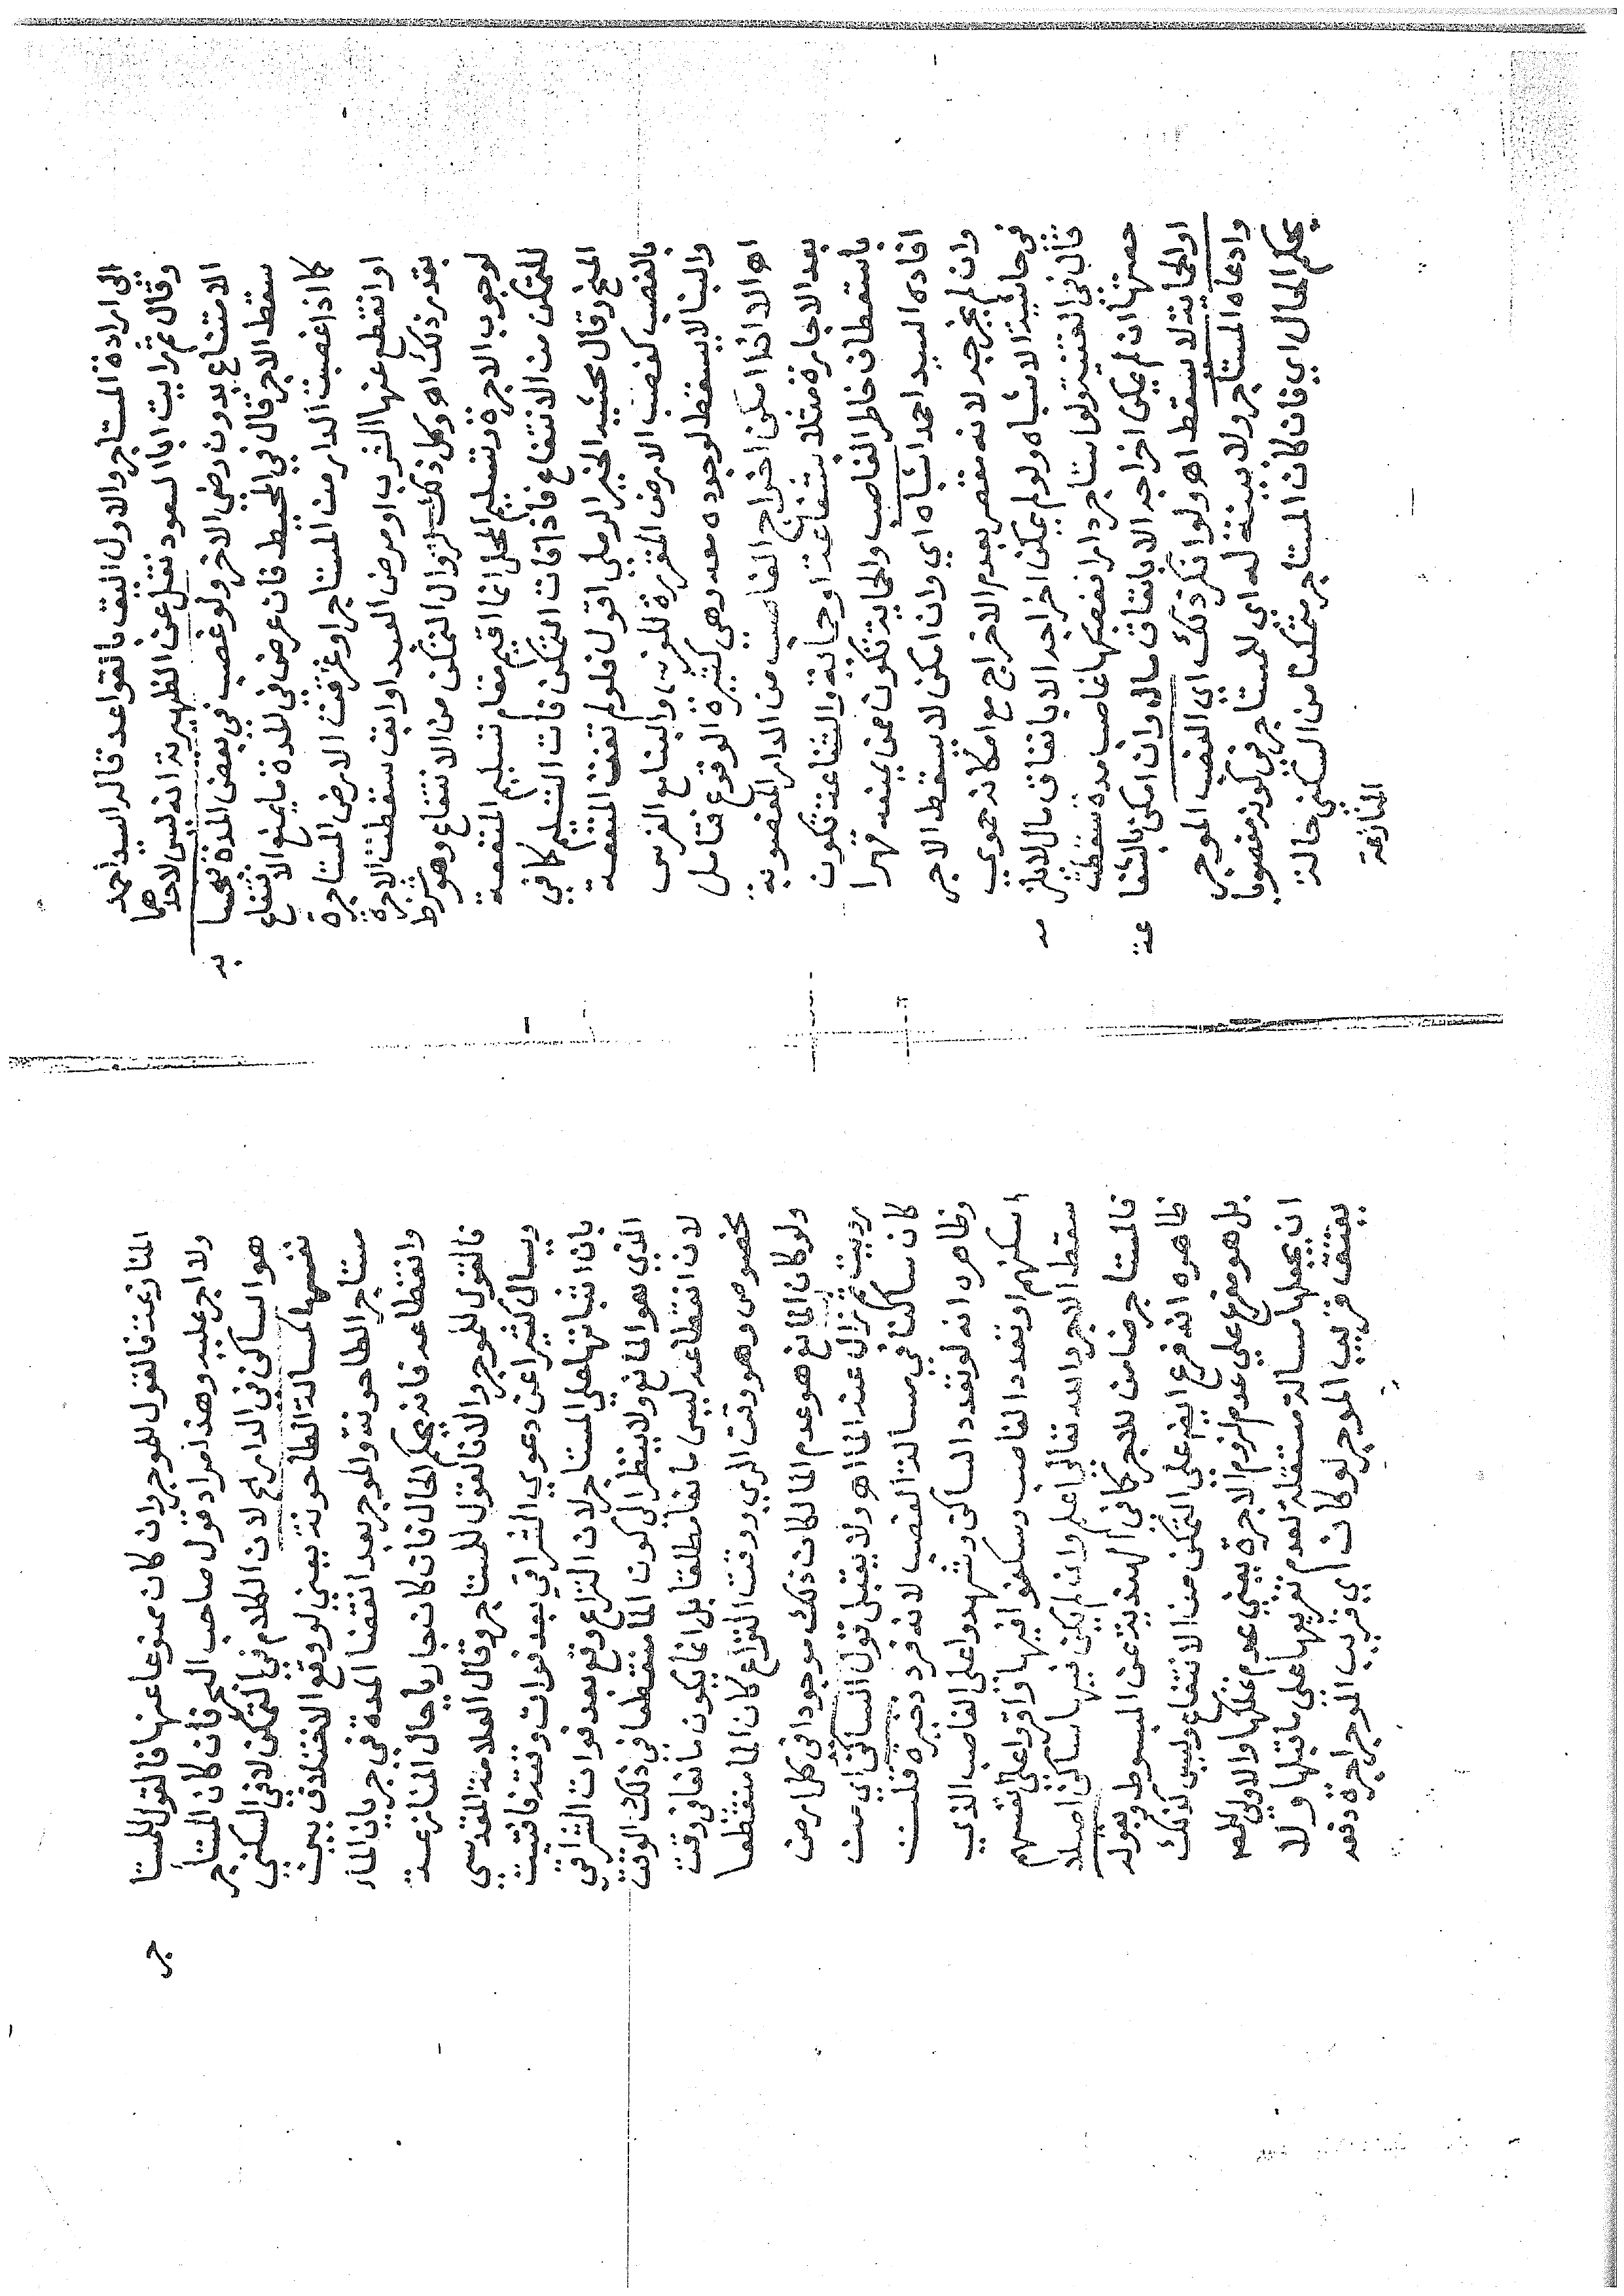 الى ارادة المستاجر والاول اليق بالقواعد قاله السيد احمد
وقال ثم رايت ابا السعود نقل عن الظهيرية انه ليس لاحدهما
الامتناع بدون رضي الاخر ولو غصب في بعض المدة فبحسابه
سقط الاجر قال في المحيط فان عرض في المدة ما يمنع الانتفاع
كما اذا غصبت الدار من المستاجر او غرقت الارض المستاجرة
او انقطع عنها الشرب او مرض العبد او ابق سقطت الاجرة
بقدر ذلك اه وكل ذلك لزوال التمكن من الانتفاع وهو شرط
لوجوب الاجرة وتسليم المحل انما اقيم مقام تسليم المنفعة
للتمكن من الانتفاع فاذا فات التمكن فات التسليم كما في
المنح وقال محشيه الخير الرملي اقول فلو لم تفت المنفعة
بالغصب كغصب الارض المقررة للغرس والبنا مع الغرس
والبنا لا يسقط لوجوده معه وهي كثيرة الوقوع فتامل
اه الا اذا امكن اخراج الغاصب من الدار المغصوبة
بعد الاجارة مثلا بشفاعة او حماية والشفاعة تكون
باستعطاف خاطر الغاصب والحماية تكون ممن يمنعه قهرا
افاده السيد احمد اشباه اي وان امكن لا يسقط الاجر
وان لم يخرجه لانه مقصر بعدم الاخراج مع امكانه حموي
في حاشية الاشباه ولو لم يمكن اخراجه الا بانفاق مال لا يلزمه
قال في القنية ولو استاجر دارا فغصبها غاصب مدة سقطت
حصتها ان لم يمكن اخراجه الا بانفاق ماله وان امكن بالشفاعة
او الحماية لا يسقط اه ولو انكر ذلك اي الغصب الموجر
وادعاه المستاجر ولا بينة له اي للمستاجر في كونه مغصوبا
يحكم الحال اي فان كان المستاجر متمكنا من السكنى حالة
المنازعة
المنازعة فالقول للموجر وان كان ممنوعا عنها فالقول للمستاجر
ولا اجر عليه وهذا مراد قول صاحب البحر فان كان المستاجر
هو الساكن في الدار الخ لان الكلام في التمكن لا في السكني
نفسها كمسالة الطاحونة يعني لو وقع الاختلاف بين
مستاجر الطاحونة والموجر بعد انقضا المدة في جريان الماء
وانقطاعه فانه يحكم الحال فان كان جاريا حال المنازعة
فالقول للموجر والا فالقول للمستاجر وقال العلامة المقدسي
ويسال كثيرا عن دعوي الشراقي بعد فوات وقته فافتيت
بان اثباتها على المستاجر لان النزاع وقع بعد فوات الشراقي
الذي هو المانع ولا ينظر الى كون الما منقطعا في ذلك الوقت
لان انقطاعه ليس مانعا مطلقا بل انما يكون مانعا في وقت
مخصوص وهو وقت الري ووقت النزاع كان الما منقطعا
ولو كان المانع هو عدم الما لكان ذلك موجودا في كل ارض
رويت ثم زال عنه الما اه ولا يقبل قول الساكن اي من
كان ساكنا في مسالة الغصب لانه فرد ذخيرة قلت
وظاهره انه لو تعدد الساكن وشهدوا على الغاصب الذي
اسكنهم او تعدد الغاصب وسكنوا فيها واقروا على نفسهم
سقط الاجر والله تعالى اعلم وان لم يكن فيها ساكن اصلا
فالمستاجر ضامن للاجر كما في الهندية عن المبسوط وبعوله
ظاهره انه فرع ايضا علي التمكن من الانتفاع وليس كذلك
بل هو مفرع علي عدم لزوم الاجرة يعني عدم تملكها والاولى للمصنف
ان يجعلها مسالة مستقلة لعدم تفريعها على ما قبلها وقال
يعتق قريب الموجر لو كان اي قريب الموجر اجرة دفعه